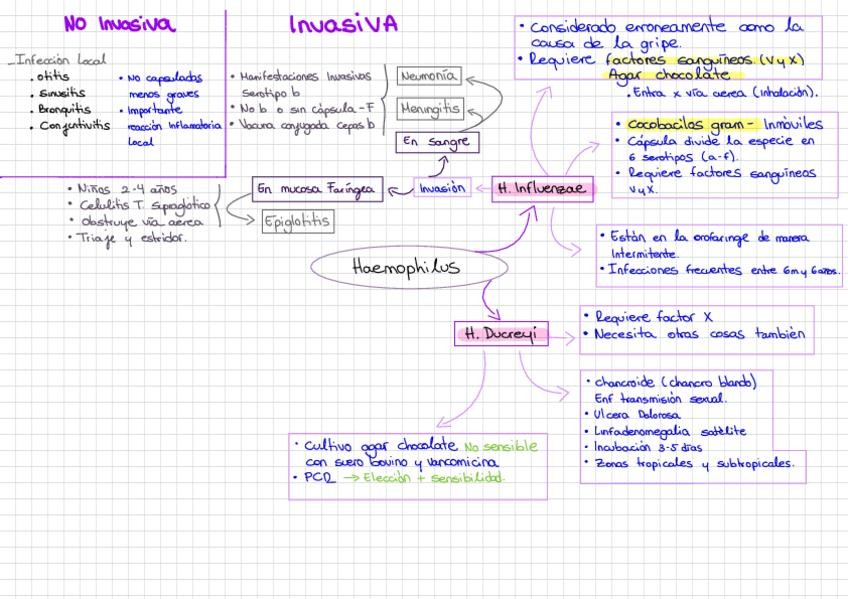 No Invasiva
_Infección Local
. otitis
. Sinusitis
. Bronquitis
. Conjuntivitis
• No capsulados
menos graves
• Importante
reacción inflamatoria
Local
InvasiVA
• Manifestaciones Invasivas
Serotipo b
• No b o sin cápsula -F
• Vacuna conjugada cepas b
Neumonía
Meningitis
En sangre
• Considerado erroneamente como la
causa de la gripe.
• Requiere factores sanguíneos (V y X)
Agar chocolate
• Entra x vía aerea (inhalación).
• Cocobacilos gram- Inmóviles
• Cápsula divide la especie en
6 serotipos (a-f).
• Requiere factores sanguíneos
V y X.
• Niños 2-4 años
• Celulitis T. supraglótico
• Obstruye vía aerea
• Triaje y estridor.
En mucosa Faríngea
Epiglotitis
Invasión
H. Influenzae
• Están en la orofaringe de manera
Intermitente.
• Infecciones frecuentes entre 6m y 6 años.
Haemophilus
H. Ducreyi
• Requiere factor X
• Necesita otras cosas también
• chancroide (chancro blando)
Enf transmisión sexual.
• Ulcera Dolorosa
• Linfadenomegalia satélite
• Incubación 3-5 días
• Zonas tropicales y subtropicales.
• Cultivo agar chocolate No sensible
con suero bovino y vancomicina
• PCR → Elección + sensibilidad.